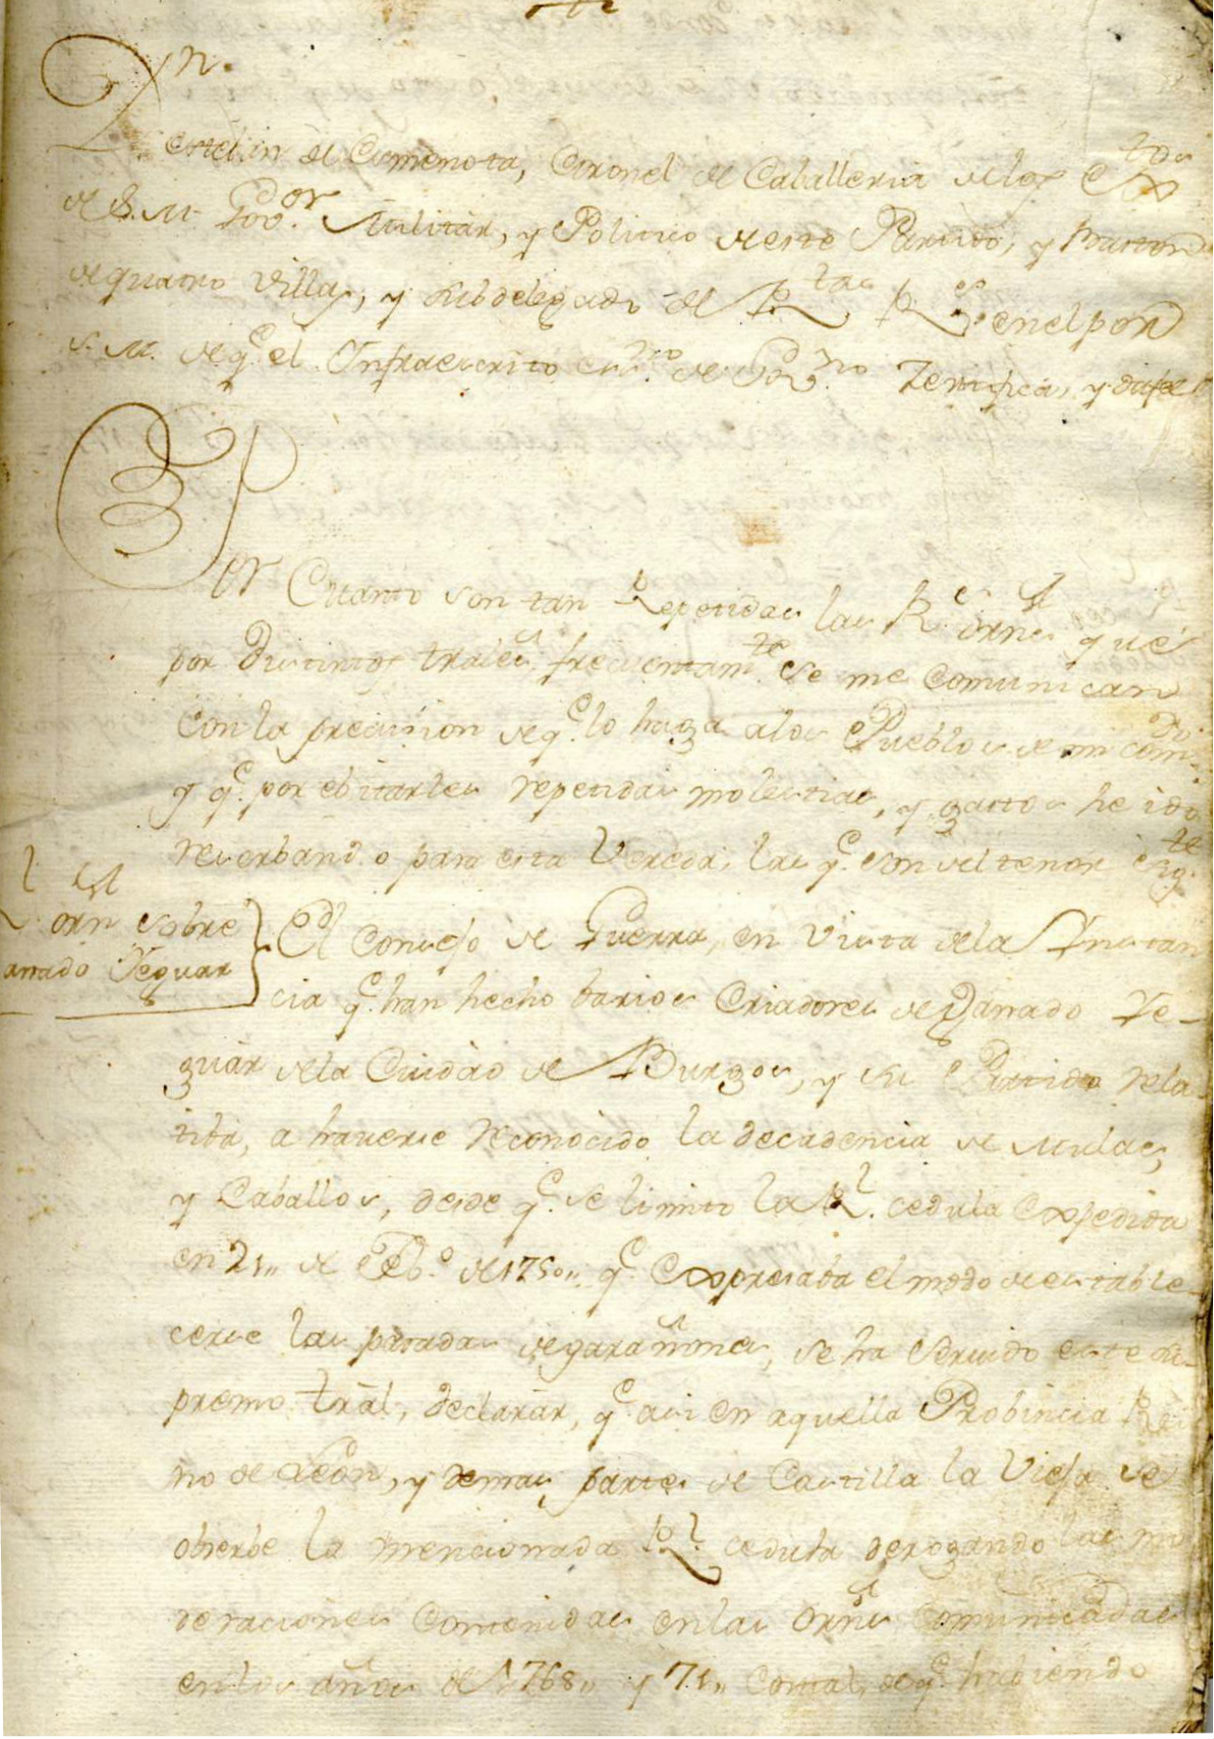 Dn.
de Cumenota, Coronel de Caballeria delos Extos
de S. M. Govor. Militar, y Politico de este Partido, y
de quatro Villas, y subdelegado de Rtas Rs. en el por
S. M. de q.e el Infraescrito Essno de Govno Zertifica, y da fee
Por Cuanto son tan Repetidas las Rs orns que
por distintos trales frecuentamte se me comunican
con la precision de q.e lo haga alos Pueblos de mi Comdo.
y q.e por ebitarles repetidas molestias, y gastos he ido
reserbando para esta Vereda, las q.e son del tenor sigte
l orn sobre
anado Yeguar
El Consejo de Guerra, en Vista dela Instan
cia q.e han hecho barios Criadores de Ganado Ye-
guar dela Ciudad de Burgos, y su Partido rela
tiba, a haverse reconocido la decadencia de Mulas,
y Caballos, desde q.e se limito la Rl. cedula expedida
en 21,, de Feb.o de 1750,, q.e Expresaba el modo de estable-
cerse las paradas de garañones, se ha serbido este Su-
premo tral, declarar, q.e asi en aquella Probincia Rei
no de Leon, y demas partes de Castilla la Vieja se
obserbe la mencionada Rl. cedula derogando las mo
deraciones Contenidas en las Orns Comunicadas
en los años de 1768,, y 71,, Contal, de q.e habiendo